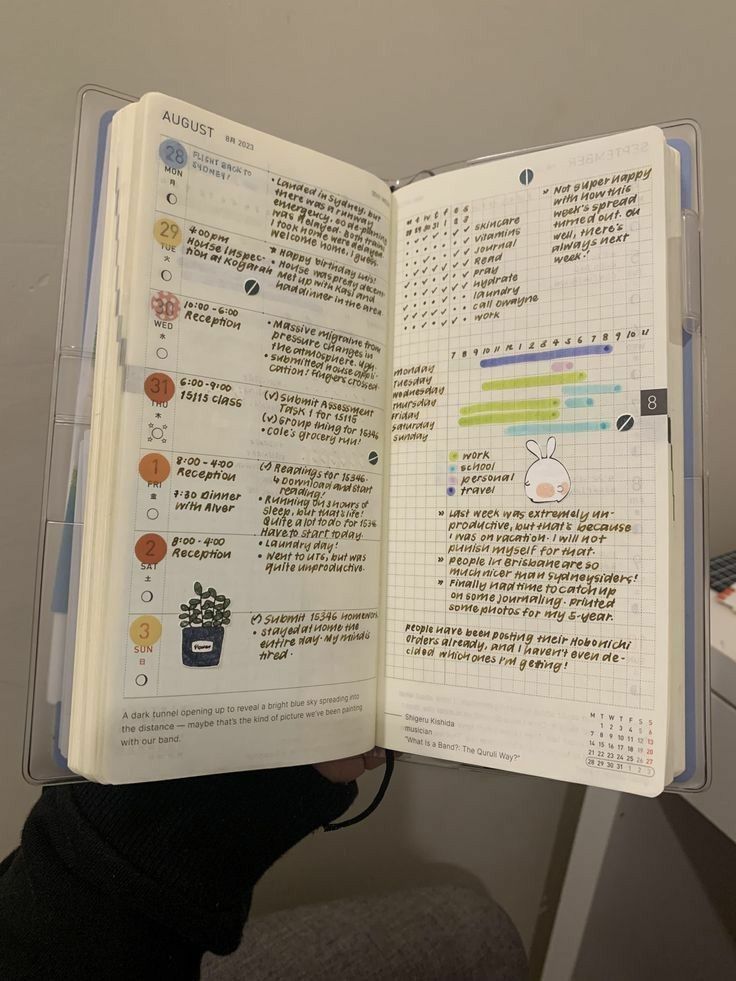 AUGUST 8月 2023
28
MON
月
FLIGHT BACK TO
SYDNEY!
• Landed in Sydney, but
there was a runway
emergency, so de-planing
was delayed. Both trains
I took home were delayed.
Welcome home, I guess.
29
TUE
火
4:00pm
House Inspec-
tion at Kogarah
* Happy birthday Luis!
• House was pretty decent.
Met up with Kasi and
had dinner in the area.
30
WED
水
10:00 - 6:00
Reception
• Massive migraine from
pressure changes in
the atmosphere. Ugh.
• submitted house appli-
cation! Fingers crossed.
31
THU
木
6:00 - 9:00
15115 class
(v) Submit Assessment
Task 1 for 15115
(v) Group thing for 15346
• Cole's grocery run!
1
FRI
金
8:00 - 4:00
Reception
7:30 Dinner
with Alver
(✓) Readings for 15346.
↳ Download and start
reading!
• Running on 3 hours of
sleep, but that's life!
Quite a lot to do for 15346
Have to start today.
2
SAT
土
8:00 - 4:00
Reception
• Laundry day!
• Went to UTS, but was
quite unproductive.
3
SUN
日
(✓) Submit 15346 homework
• stayed at home the
entire day. My mind is
tired.
Flower
A dark tunnel opening up to reveal a bright blue sky spreading into
the distance — maybe that's the kind of picture we've been painting
with our band.
M T W T F S S
28 29 30 31 1 2 3
skincare
vitamins
journal
Read
pray
hydrate
laundry
call dwayne
work
» Not super happy
with how this
week's spread
turned out. Oh
well, there's
always next
week!
7 8 9 10 11 12 1 2 3 4 5 6 7 8 9 10 11
Monday
Tuesday
Wednesday
Thursday
Friday
Saturday
Sunday
8
work
school
personal
travel
» Last week was extremely un-
productive, but that's because
I was on vacation. I will not
punish myself for that.
» People in Brisbane are so
much nicer than Sydneysiders!
» Finally had time to catch up
on some journaling. Printed
some photos for my 5-year.
People have been posting their Hobonichi
orders already, and I haven't even de-
cided which ones I'm getting!
Shigeru Kishida
musician
"What Is a Band?: The Quruli Way?"
M T W T F S S
1 2 3 4 5 6
7 8 9 10 11 12 13
14 15 16 17 18 19 20
21 22 23 24 25 26 27
28 29 30 31 1 2 3